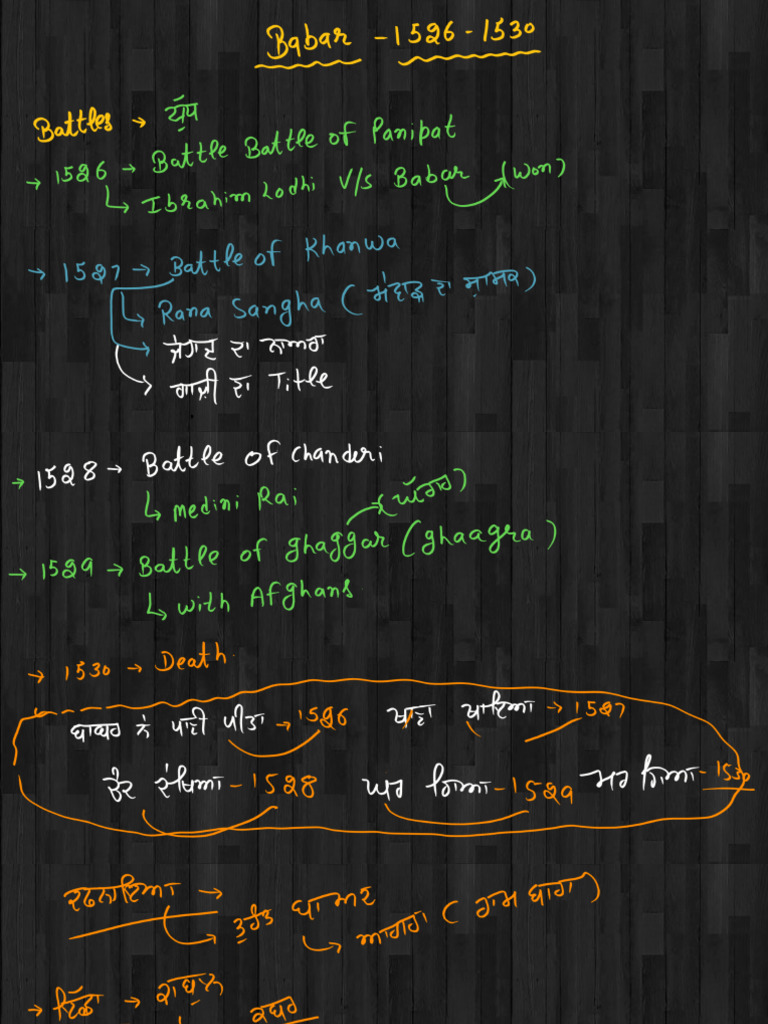 Babar - 1526 - 1530
Battles → ਯੁੱਧ
→ 1526 → Battle Battle of Panipat
↳ Ibrahim Lodhi V/s Babar (won)
→ 1527 → Battle of Khanwa
↳ Rana Sangha ( ਮੇਵਾੜ ਦਾ ਸ਼ਾਸਕ )
→ ਜੇਹਾਦ ਦਾ ਨਾਅਰਾ
→ ਗਾਜ਼ੀ ਦਾ Title
→ 1528 → Battle of chanderi
↳ medini Rai
→ 1529 → Battle of ghaggar (ਘੱਗਰ) (ghaagra)
↳ with Afghans
→ 1530 → Death
ਬਾਬਰ ਨੇ ਪਾਣੀ ਪੀਤਾ → 1526 ਖਾਣਾ ਖਾਇਆ → 1527
ਚੰਦ ਦੇਖਿਆ - 1528 ਘਰ ਗਿਆ - 1529 ਮਰ ਗਿਆ - 1530
ਦਫਨਾਇਆ →
↳ ਤੁਰੰਤ ਬਾਅਦ
↳ ਆਗਰਾ ( ਰਾਮ ਬਾਗ )
→ ਇੱਛਾ → ਕਾਬੁਲ
ਕਬਰ